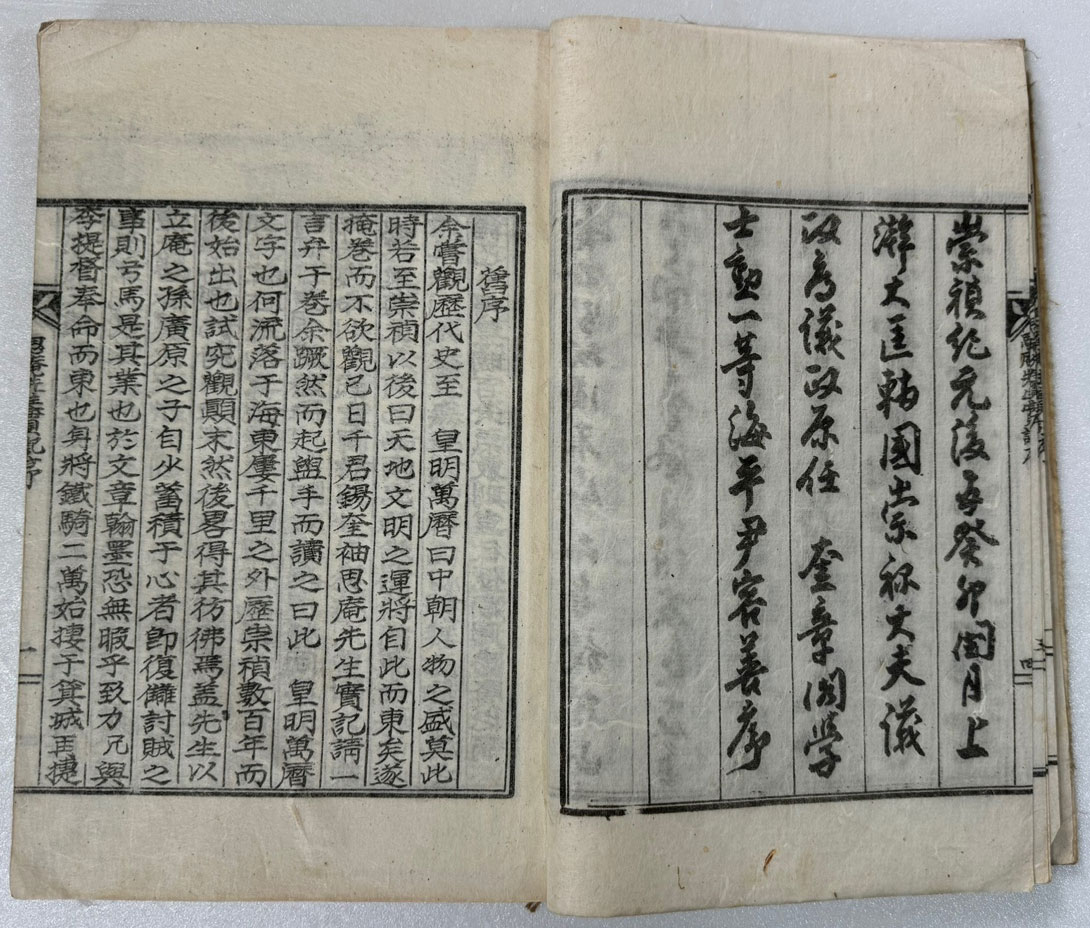 崇禎紀元後五癸卯閏月上
澣大匡輔國崇祿大夫議
政府議政原任 奎章閣學
士勳一等海平尹容善序
舊序
余嘗觀歷代史至 皇明萬曆曰中朝人物之盛莫此
時若至崇禎以後曰天地文明之運將自此而東矣遂
掩卷而不欲觀已日千君錫奎袖思庵先生實記請一
言弁于卷余蹶然而起盥手而讀之曰此 皇明萬曆
文字也何流落于海東屢千里之外歷崇禎數百年而
後始出也試究觀顚末然後畧得其彷彿焉盖先生以
立庵之孫廣原之子自少蓄積于心者卽復讎討賊之
事則弓馬是其業也於文章翰墨恐無暇乎致力况與
李提督奉命而東也身將鐵騎二萬始摟于箕城再捷
思庵先生實記序
一